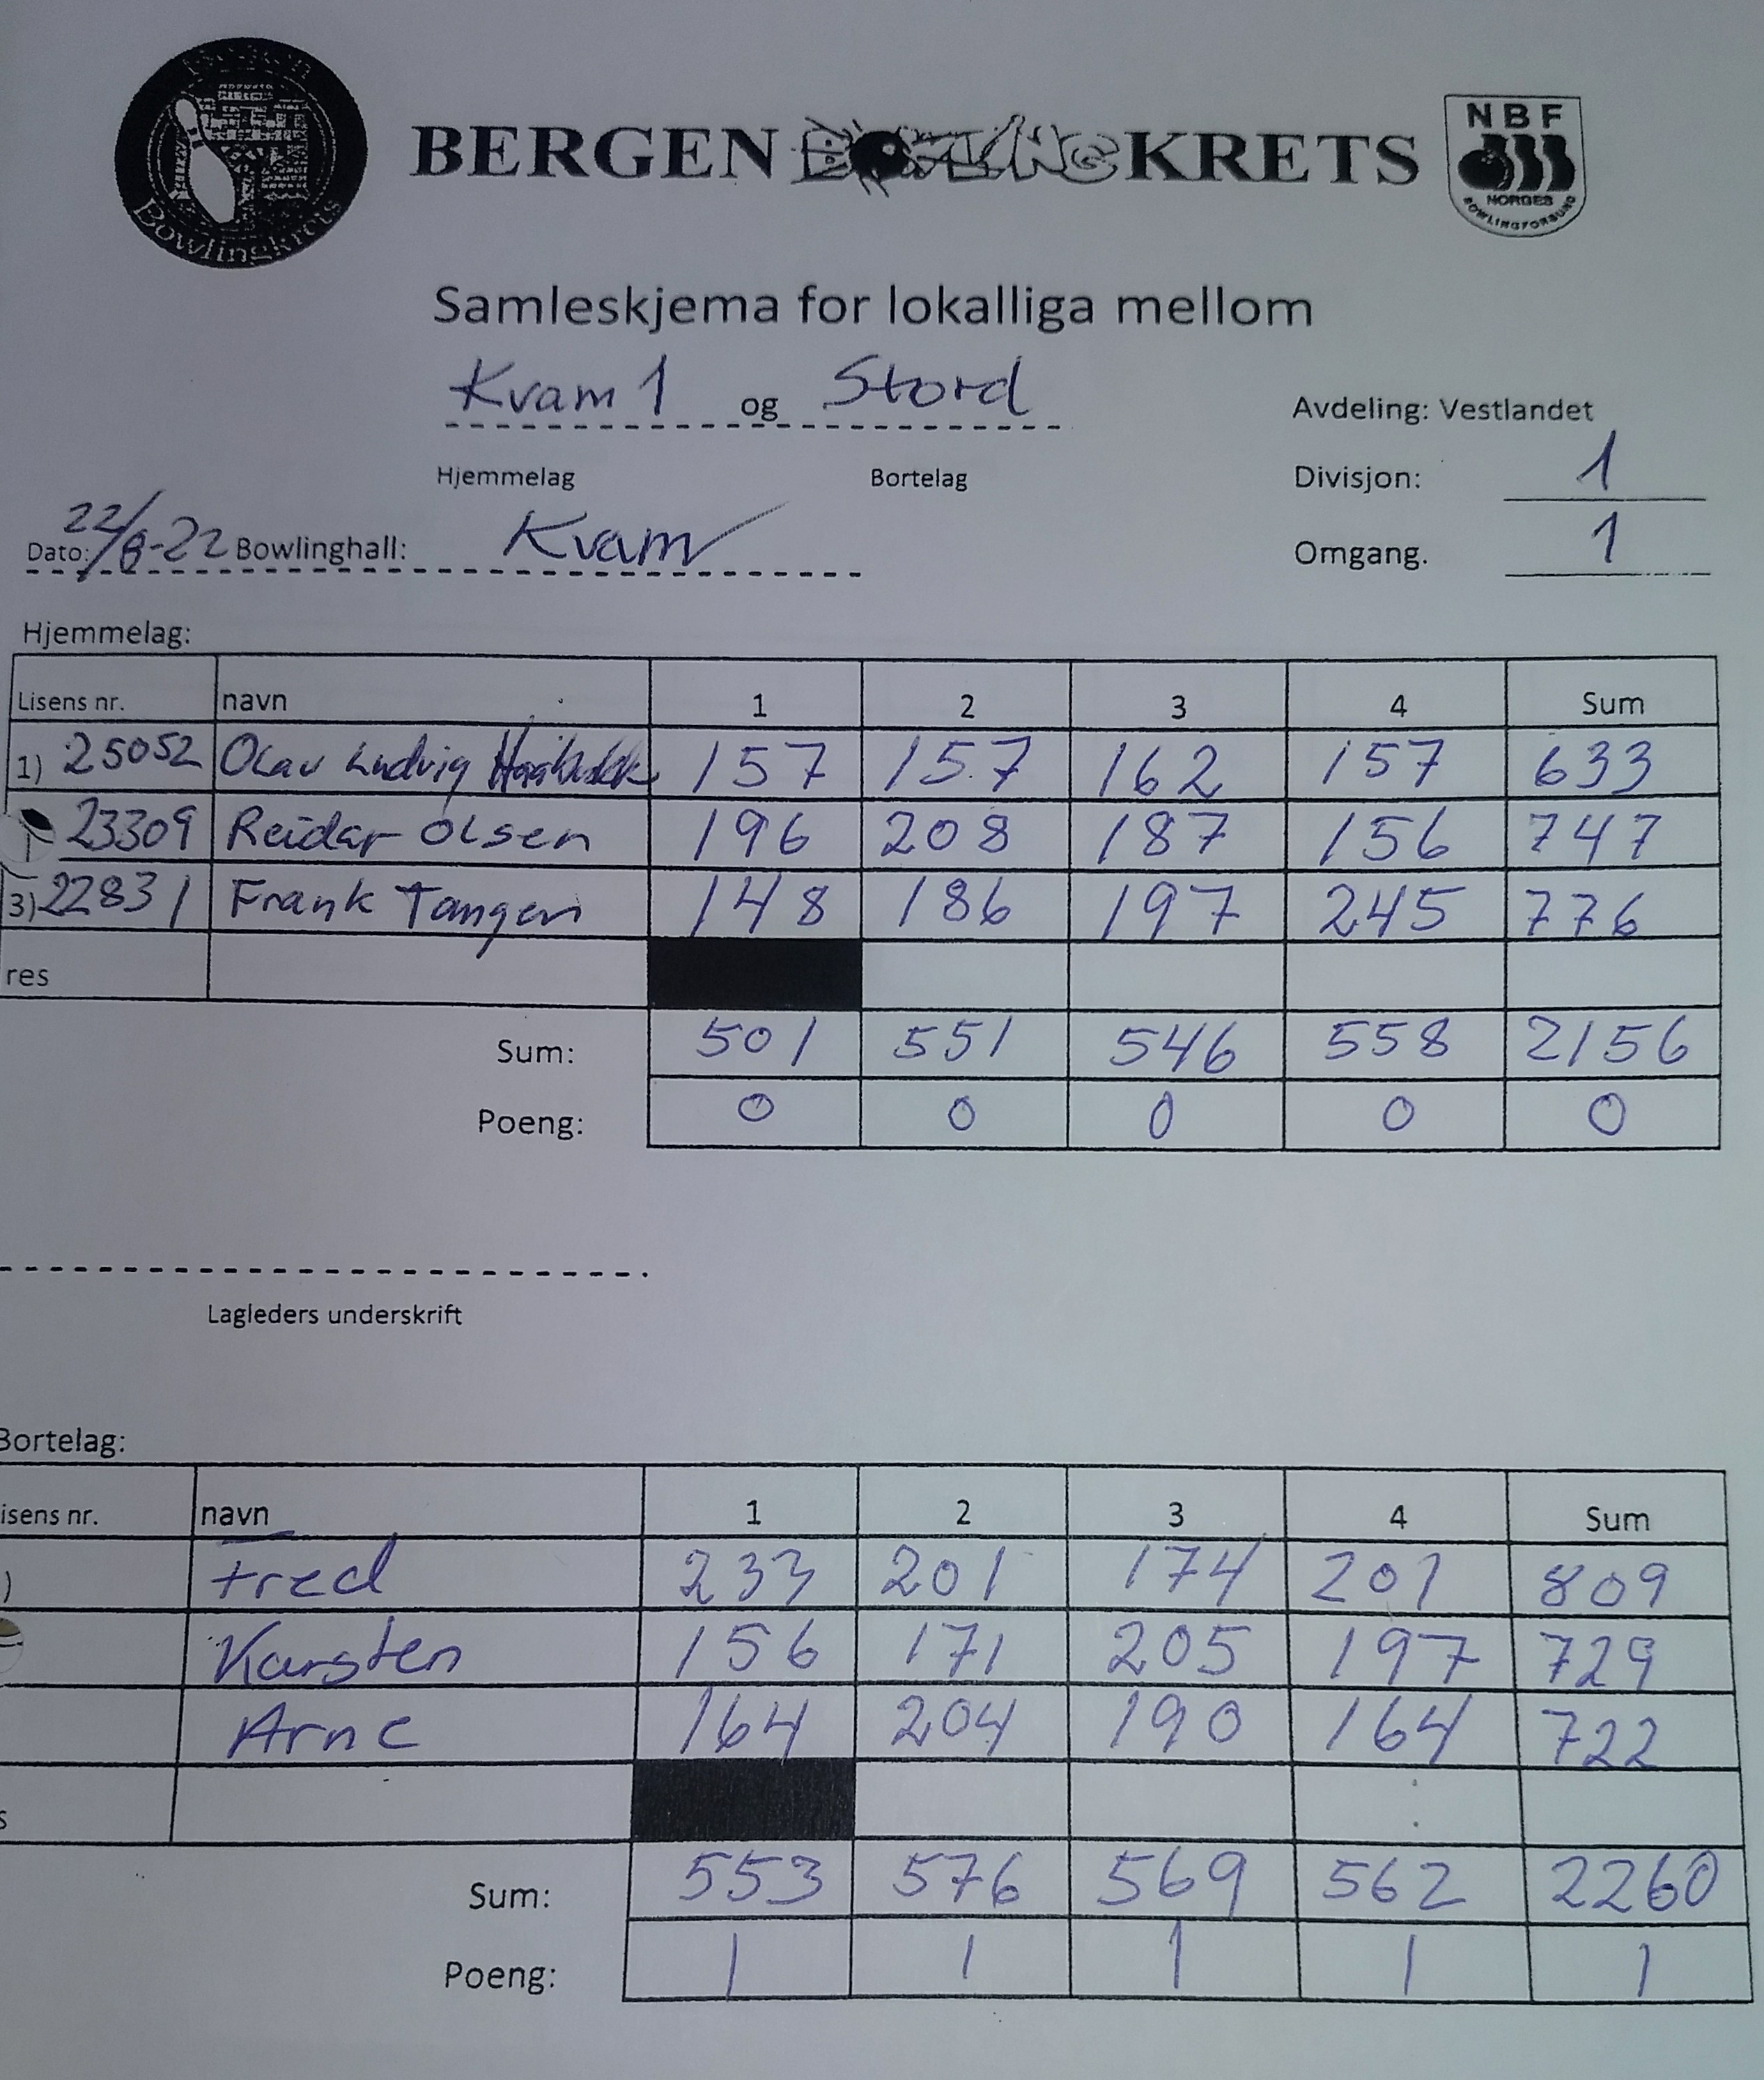 Bowlingkrets
BERGEN BOWLING KRETS
NBF
NORGES
BOWLINGFORBUND
Samleskjema for lokalliga mellom
Kvam 1 og Stord
Avdeling: Vestlandet
Hjemmelag Bortelag
Divisjon: 1
Dato: 22/8-22 Bowlinghall: Kvam
Omgang. 1
Hjemmelag:
Lisens nr. navn 1 2 3 4 Sum
1) 25052 Olav Ludvig 157 157 162 157 633
23309 Reidar Olsen 196 208 187 156 747
3) 22831 Frank Tangen 148 186 197 245 776
res
Sum: 501 551 546 558 2156
Poeng: 0 0 0 0 0
Lagleders underskrift
Bortelag:
isens nr. navn 1 2 3 4 Sum
) Fred 233 201 174 201 809
Karsten 156 171 205 197 729
Arne 164 204 190 164 722
s
Sum: 553 576 569 562 2260
Poeng: 1 1 1 1 1